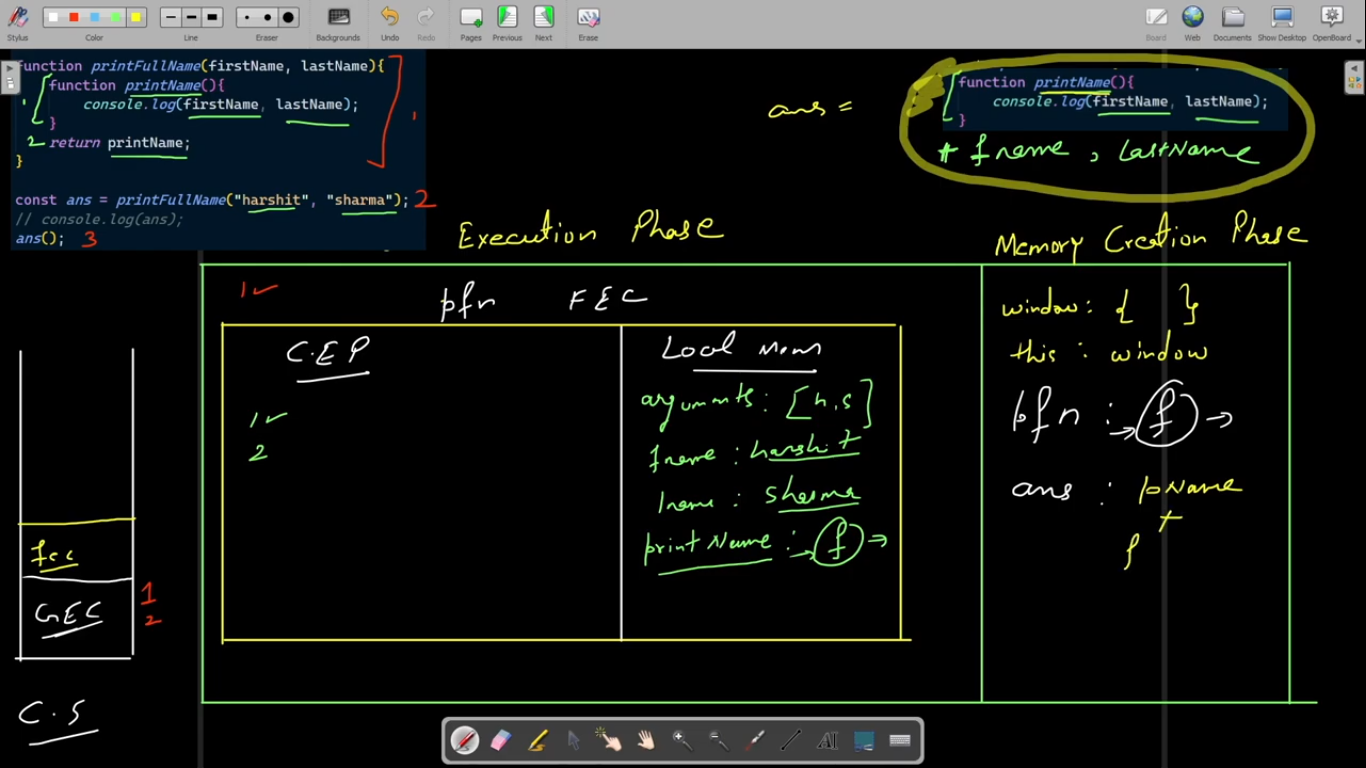 Stylus
Color
Line
Eraser
Backgrounds
Undo
Redo
Pages
Previous
Next
Erase
Board
Web
Documents
Show Desktop
OpenBoard
function printFullName(firstName, lastName){
1 function printName(){
console.log(firstName, lastName);
}
2 return printName;
}
1
const ans = printFullName("harshit", "sharma"); 2
// console.log(ans);
ans(); 3
ans =
function printName(){
console.log(firstName, lastName);
}
+ fname , lastName
Execution Phase
Memory Creation Phase
1 ✓
pfn FEC
C.E.P
Local Mem
1 ✓
2
arguments: [h,s]
fname : harshit
lname : sharma
printName : → f →
window: { }
this : window
pfn : → f →
ans : pName
+
f
fec
GEC
1
2
C.S